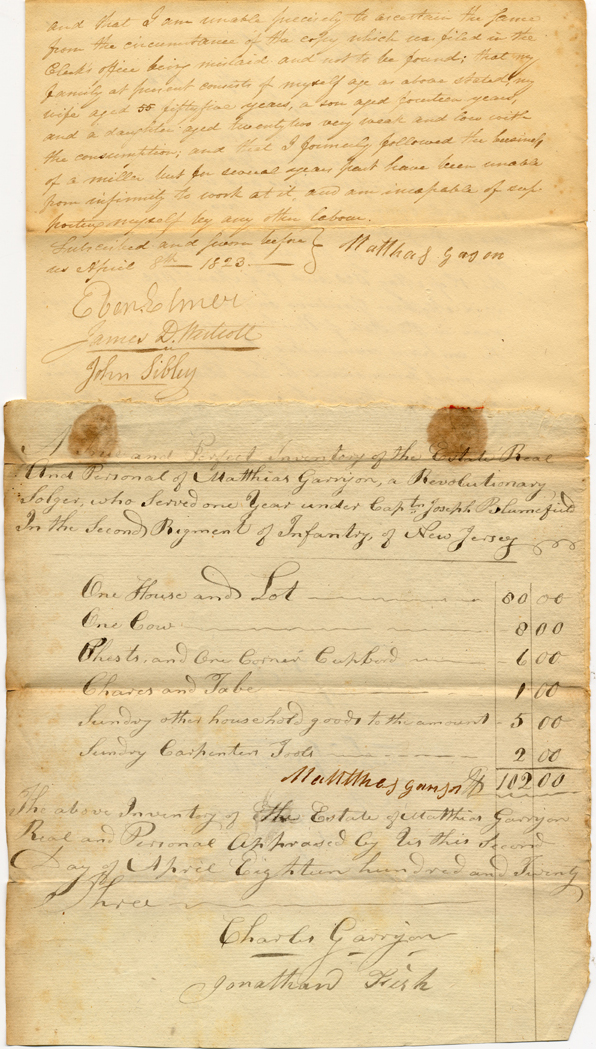 and that I am unable precisely to ascertain the same
from the circumstance of the copy which was filed in the
Clerk's office being mislaid and not to be found; that my
family at present consists of myself age as above stated, my
wife aged 55 fiftyfive years, a son aged fourteen years,
and a daughter aged twenty two very weak and low with
the consumption; and that I formerly followed the business
of a miller but for several years past have been unable
from infirmity to work at it and am incapable of sup-
porting myself by any other labour.
Subscribed and sworn before } Matthas gason
us April 8th 1823.
Eben. Elmer
James D. Westcott
John Sibley
A True and Perfect Inventory of the Estate Real
And Personal of Matthias Garryson, a Revolutionary
Solger, who Served one Year under Captn Joseph Blumefield
In the Second Rigment of Infantry, of New Jersey
One House and Lot 80 00
One Cow 8 00
Chests, and One Corner Cupbord 6 00
Chares and Tabe 1 00
Sundry other household goods to the amount 5 00
Sundry Carpenters Tools 2 00
Mattthas ganson $ 102 00
The above Inventory of The Estate of Matthias Garryson
Real and Personal Apprased by Us this Second
Day of April Eighteen hundred and Twenty
Three
Charles Garryson
Jonathan Fish